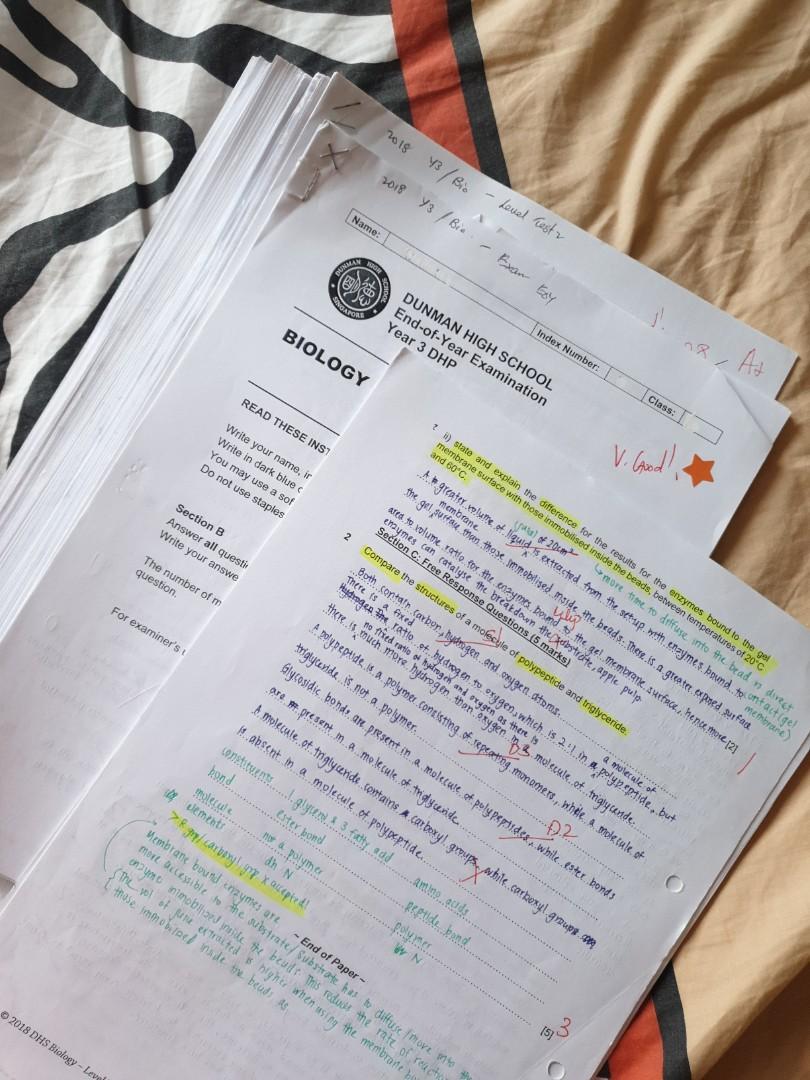 2018 Y3/Bio - Level Test 2
2018 Y3/Bio. - Exam EOY
28
Name:
Index Number:
Class:
DUNMAN HIGH SCHOOL
SINGAPORE
DUNMAN HIGH SCHOOL
End-of-Year Examination
Year 3 DHP
V. Good!
BIOLOGY
READ THESE INST
Write your name, in
Write in dark blue o
You may use a sof
Do not use staples
Section B
Answer all questi
Write your answe
The number of m
question.
For examiner's u
ii) state and explain the difference for the results for the enzymes bound to the gel
membrane surface with those immobilised inside the beads, between temperatures of 20°C
and 60°C.
A greater volume of liquid is extracted from the setup with enzymes bound to
the gel membrane surface than those immobilised inside the beads. There is a greater exposed surface
area to volume ratio for the enzymes bound to the gel membrane surface, hence more [2]
enzymes can catalyse the breakdown the substrate, apple pulp
more time to diffuse into the bead
direct contact (gel membrane)
1
Section C: Free Response Questions (5 marks)
2 Compare the structures of a molecule of polypeptide and triglyceride.
Both contain carbon, hydrogen and oxygen atoms.
There is a fixed ratio of hydrogen to oxygen, which is 2:1, in a molecule of polypeptide, but
no fixed ratio of hydrogen and oxygen as there is
there is much more hydrogen than oxygen in a molecule of triglyceride.
A polypeptide is a polymer consisting of repeating monomers, while a molecule of
triglyceride is not a polymer.
D3
Glycosidic bonds are present in a molecule of polypeptides, while ester bonds
are present in a molecule of triglyceride.
D2
A molecule of triglyceride contains carboxyl groups, while carboxyl groups
is absent in a molecule of polypeptide.
constituents 1 glycerol & 3 fatty acid amino acids
bond ester bond peptide bond
molecule not a polymer polymer
elements N N
carboxyl grp X accepted!
Membrane bound enzymes are
more accessible to the substrate/substrate has to diffuse/move into the
enzyme immobilized inside the beads. This reduces the rate of reaction
The vol of juice extracted is higher when using the membrane
those immobilized inside the beads as
~ End of Paper ~
[5] 3
© 2018 DHS Biology – Level